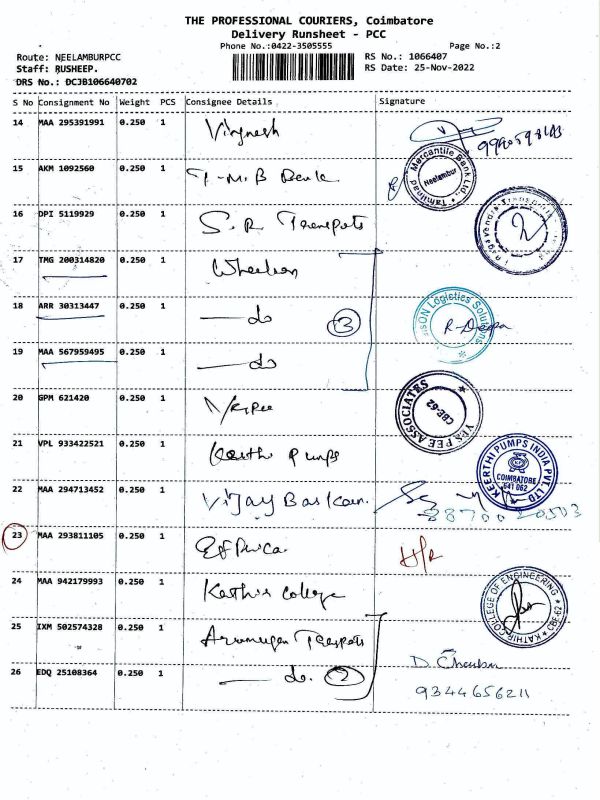 THE PROFESSIONAL COURIERS, Coimbatore
Delivery Runsheet - PCC
Phone No.:0422-3505555 Page No.:2
Route: NEELAMBURPCC RS No.: 1066407
Staff: RUSHEEP. RS Date: 25-Nov-2022
DRS No.: DCJB106640702
S No Consignment No Weight PCS Consignee Details Signature
14 MAA 295391991 0.250 1 Vignesh
15 AKM 1092560 0.250 1 T-M.B Bank Tamilnad Mercantile Bank Ltd., Neelambur
16 DPI 5119929 0.250 1 S.R Transports
17 TMG 200314820 0.250 1 Wheelson
18 ARR 30313447 0.250 1 — do 3 Logistics Solutions
19 MAA 567959495 0.250 1 — do
20 GPM 621420 0.250 1 YES PEE ASSOCIATES CBE-62
21 VPL 933422521 0.250 1 Keerthi Pumps KEERTHI PUMPS INDIA PVT. LTD COIMBATORE 641 062
22 MAA 294713452 0.250 1 Vijay Baskaran.
23 MAA 293811105 0.250 1
24 MAA 942179993 0.250 1 Kathir College KATHIR COLLEGE OF ENGINEERING CBE-62
25 IXM 502574328 0.250 1 Arumugam Transports
26 EDQ 25108364 0.250 1 — do. 2 9344656211